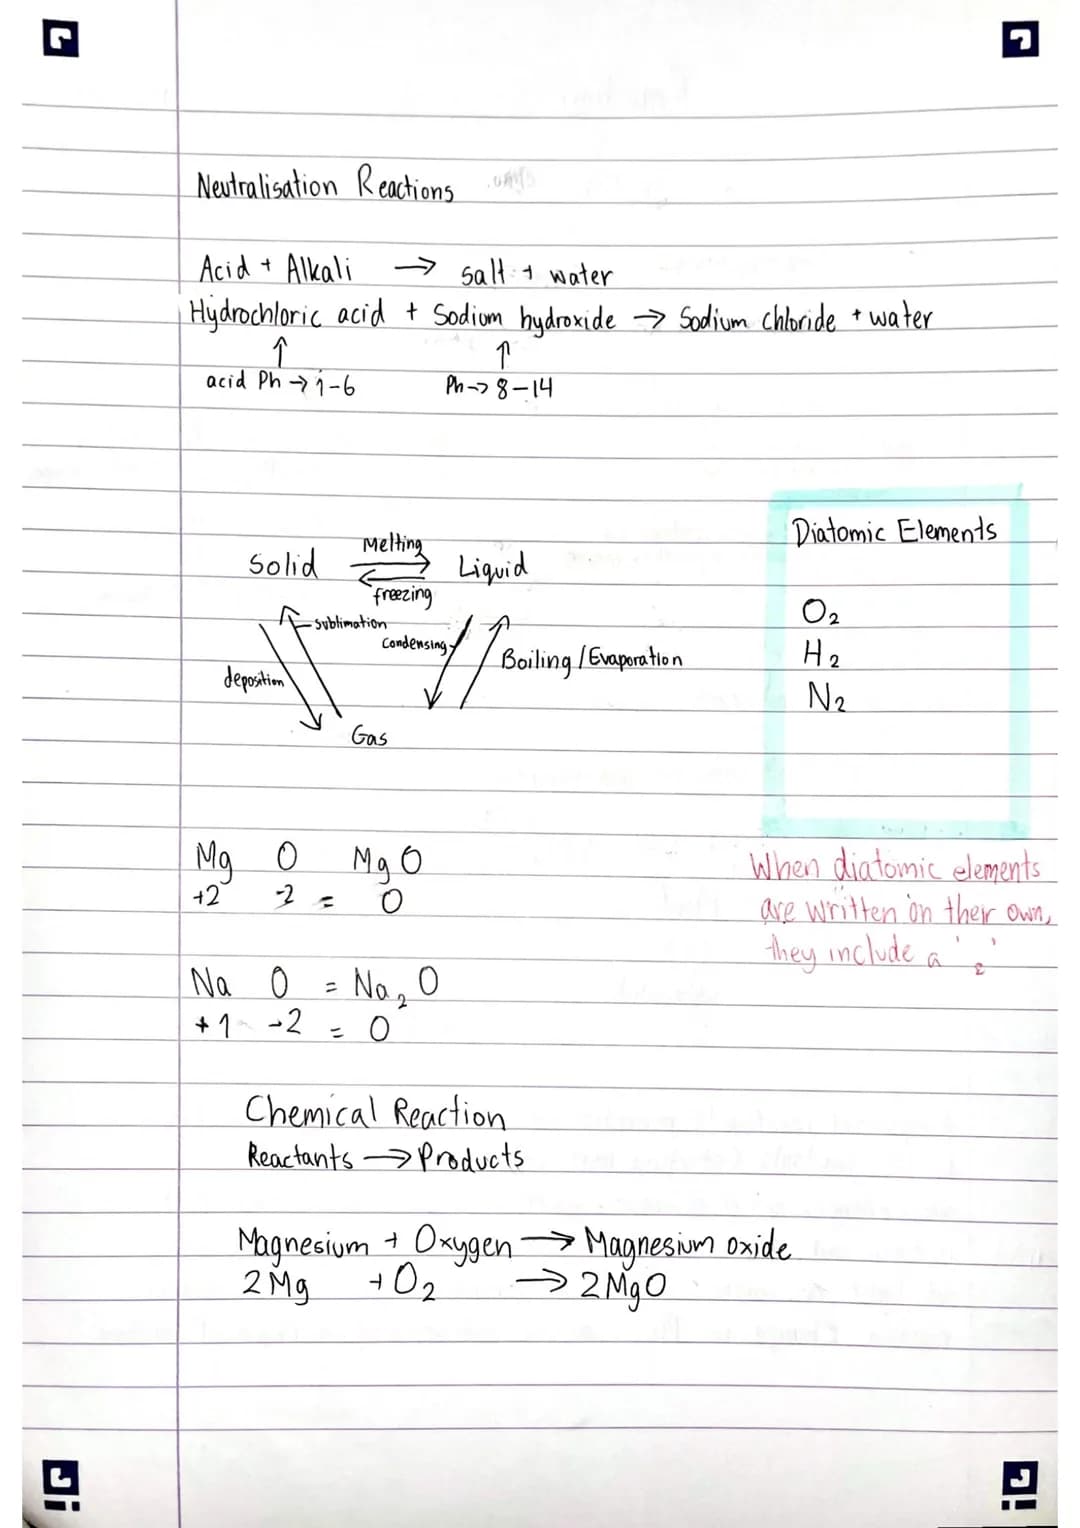 Neutralisation Reactions
Acid + Alkali → salt + water
Hydrochloric acid + Sodium hydroxide → Sodium chloride + water
↑ ↑
acid Ph → 1-6 Ph → 8-14
Diatomic Elements
O₂
H₂
N₂
Melting
Solid ⇌ Liquid
freezing
sublimation
Condensing
Boiling / Evaporation
deposition
Gas
Mg O MgO
+2 -2 = 0
When diatomic elements
are written on their own,
they include a '₂'
Na O = Na₂O
+1 -2 = 0
Chemical Reaction
Reactants → Products
Magnesium + Oxygen → Magnesium oxide
2Mg + O₂ → 2MgO